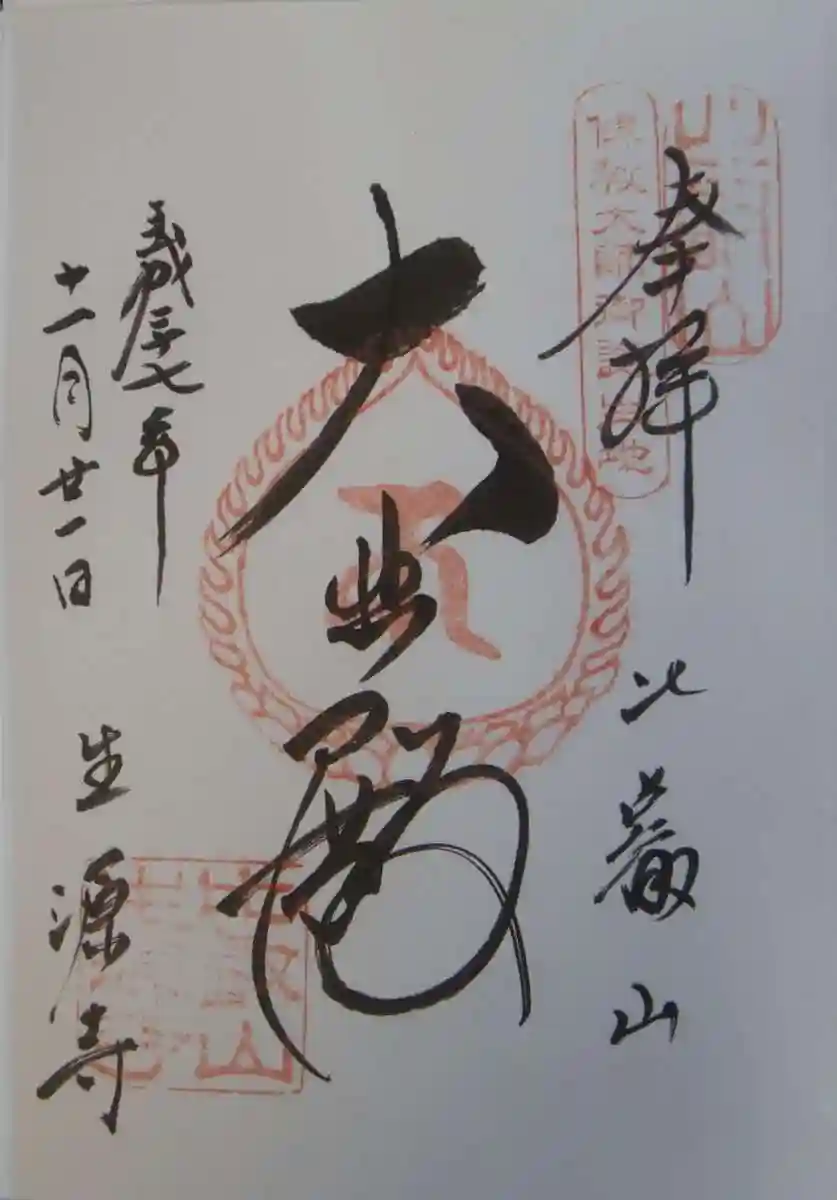 奉拝
傳教大師御誕生地
比叡山
大悲殿
平成二十七年
十一月廿一日
生源寺